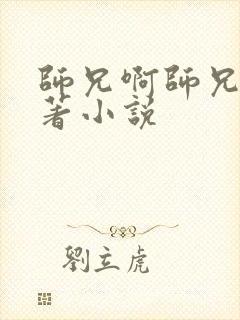 師兄啊師兄
著小說
劉立虎